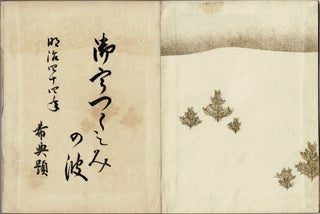 御うつくしみ
の波
明治四十四年
希典題